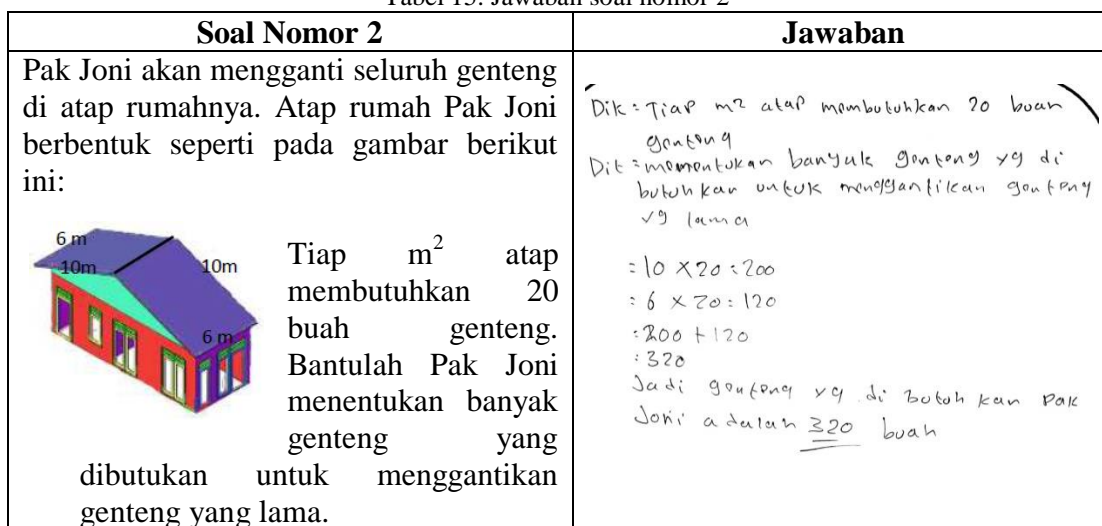 Tabel 15. Jawaban soal nomor 2
Soal Nomor 2
Pak Joni akan mengganti seluruh genteng
di atap rumahnya. Atap rumah Pak Joni
berbentuk seperti pada gambar berikut
ini:
6 m
10m
10m
6 m
Tiap m² atap
membutuhkan 20
buah genteng.
Bantulah Pak Joni
menentukan banyak
genteng yang
dibutukan untuk menggantikan
genteng yang lama.
Jawaban
Dik : Tiap m2 atap membutuhkan 20 buah
genteng
Dit : menentukan banyak genteng yg di
butuhkan untuk menggantikan genteng
yg lama
= 10 × 20 = 200
= 6 × 20 = 120
= 200 + 120
= 320
Jadi genteng yg di butuhkan Pak
Joni adalah 320 buah